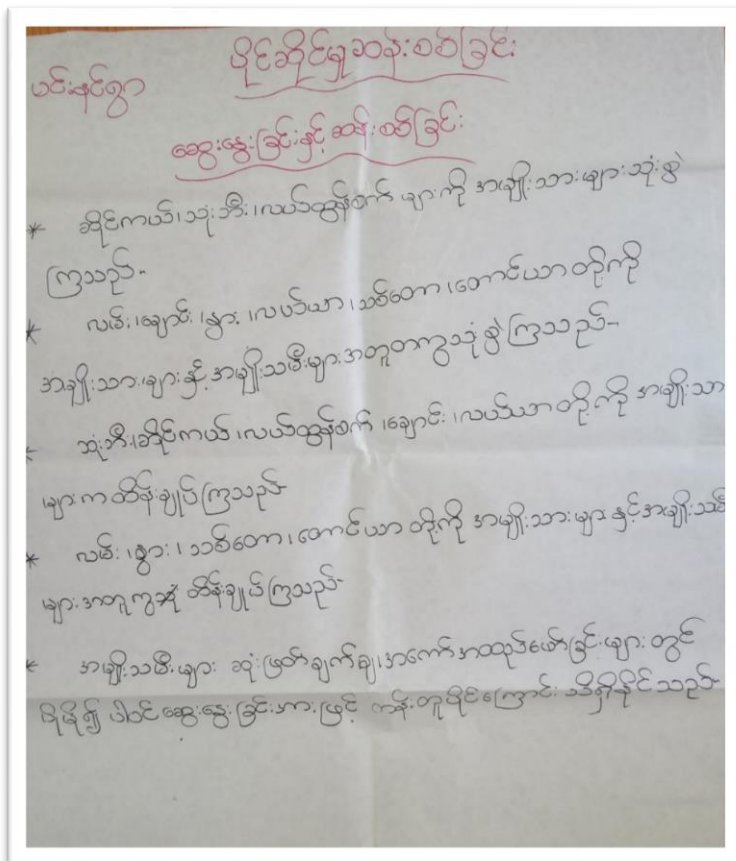 ပိုင်ဆိုင်မှုဆန်းစစ်ခြင်း
ပင်းနင်ရွာ
ဆွေးနွေးခြင်းနှင့် ဆန်းစစ်ခြင်း
* ဆိုင်ကယ်၊ သုံးဘီး၊ လယ်ထွန်စက် များကို အမျိုးသားများသုံးစွဲ
ကြသည်-
* လမ်း၊ ချောင်း၊ နွား၊ လယ်ယာ၊ သစ်တော၊ တောင်ယာ တို့ကို
အမျိုးသားများနှင့် အမျိုးသမီးများအတူတကွသုံးစွဲကြသည်-
* သုံးဘီး၊ ဆိုင်ကယ်၊ လယ်ထွန်စက်၊ ချောင်း၊ လယ်ယာ တို့ကို အမျိုးသား
များက ထိန်းချုပ်ကြသည်-
* လမ်း၊ နွား၊ သစ်တော၊ တောင်ယာ တို့ကို အမျိုးသားများ နှင့် အမျိုးသမီ
များအတူကွ ထိန်းချုပ်ကြသည်-
* အမျိုးသမီးများ ဆုံးဖြတ်ချက်ချ၊ အကောင်အထည်ဖော်ခြင်းများ တွင်
ပိုမို၍ ပါဝင်ဆွေးနွေးခြင်းအားဖြင့် တန်းတူပိုင်ကြောင်း သိရှိနိုင်သည်-